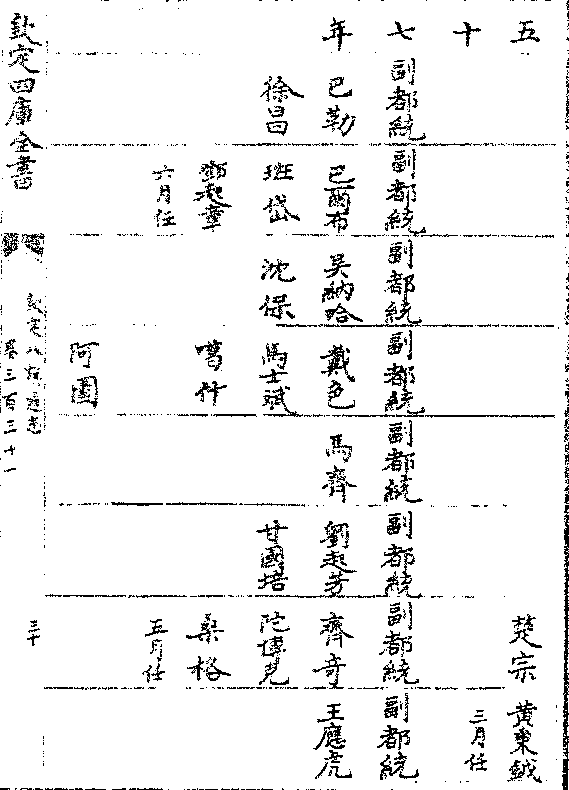 五 楚宗 黄秉鉞
十 三月任
七 副都統 副都統 副都統 副都統 副都統 副都統 副都統 副都統
年 巴勒 巴爾布 吴納哈 戴色 馬齊 劉起芳 齊竒 王應虎
徐昌 班岱 沈保 馬士斌 甘國培 陀博克
起章 噶什 桑格
六月任 五月任
阿圖
欽定八旗通志
欽定四庫全書 卷三百三十一 三十